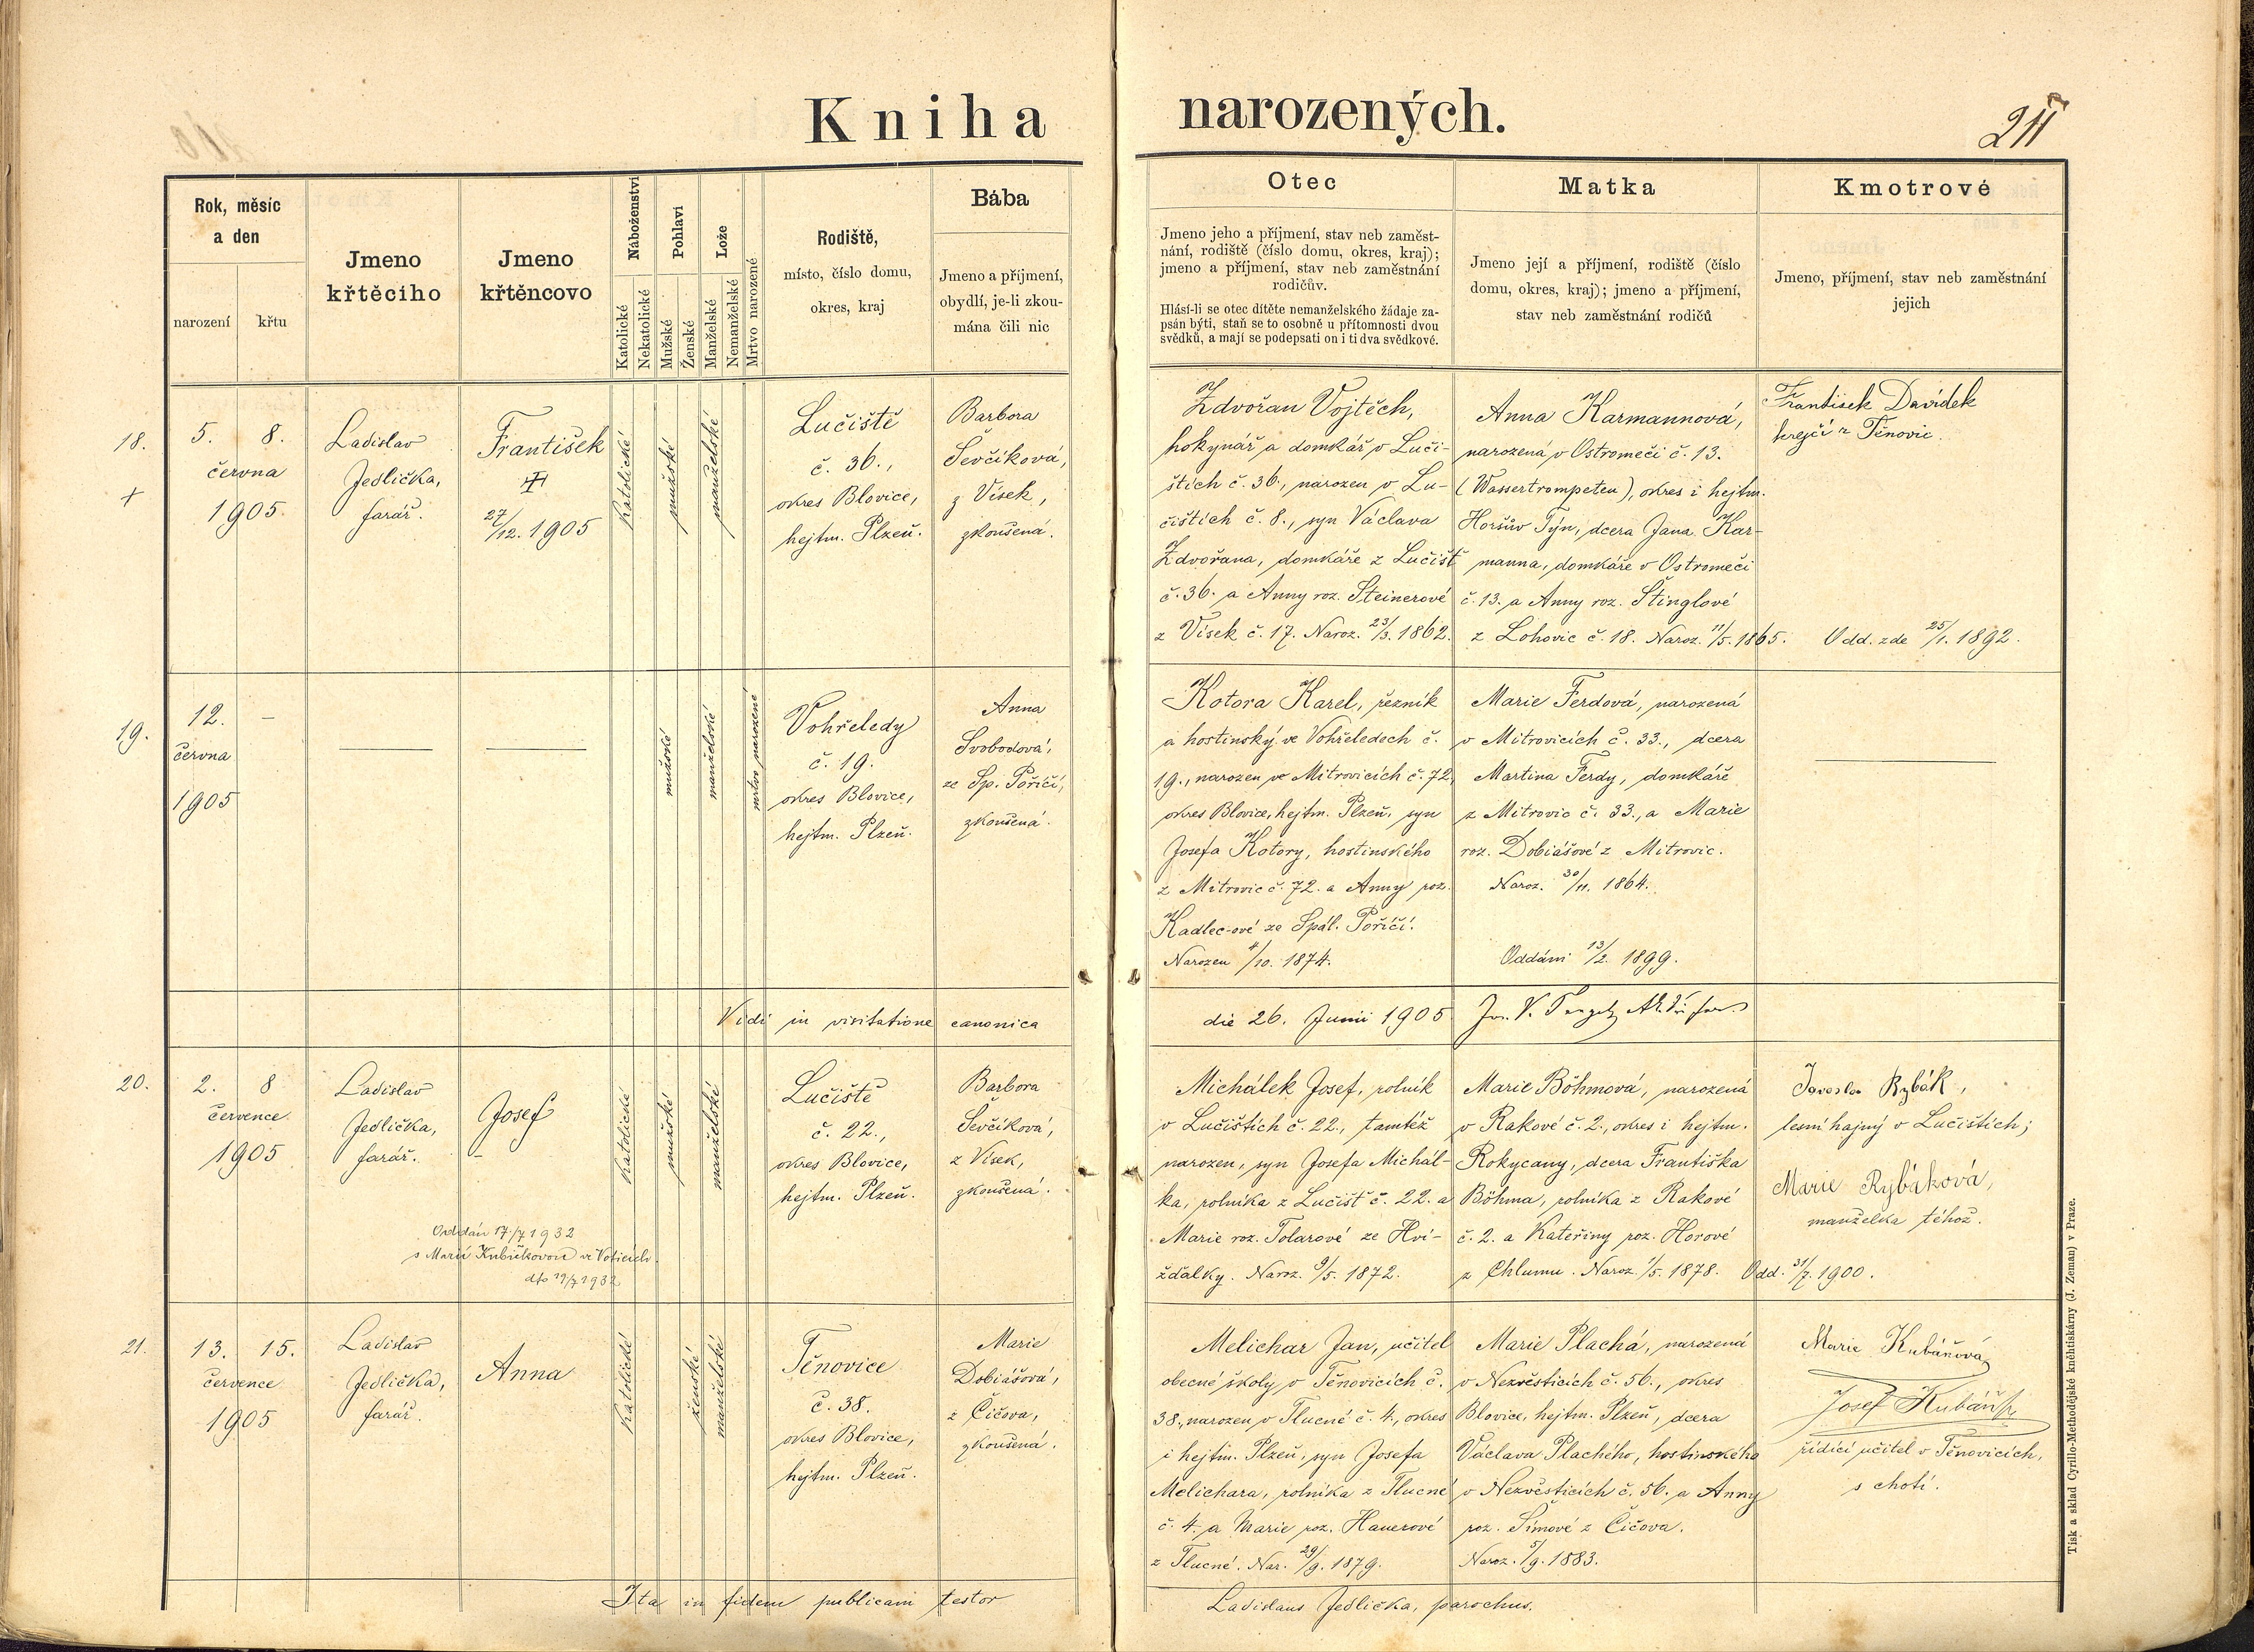 Kniha narozených.
211
Rok, měsíc
a den
narození
křtu
Jmeno
křtěcího
Jmeno
křtěncovo
Náboženství
Katolické
Nekatolické
Pohlaví
Mužské
Ženské
Lože
Manželské
Nemanželské
Mrtvo narozené
Rodiště,
místo, číslo domu,
okres, kraj
Bába
Jmeno a příjmení,
obydlí, je-li zkou-
mána čili nic
Otec
Jmeno jeho a příjmení, stav neb zaměst-
nání, rodiště (číslo domu, okres, kraj);
jmeno a příjmení, stav neb zaměstnání
rodičův.
Hlásí-li se otec dítěte nemanželského žádaje za-
psán býti, staň se to osobně u přítomnosti dvou
svědků, a mají se podepsati on i ti dva svědkové.
Matka
Jmeno její a příjmení, rodiště (číslo
domu, okres, kraj); jmeno a příjmení,
stav neb zaměstnání rodičů
Kmotrové
Jmeno, příjmení, stav neb zaměstnání
jejich
18.
+
5. 8.
června
1905.
Ladislav
Jedlička,
farář.
František
27/12. 1905
katolické
mužské
manželské
Lučiště
č. 36.,
okres Blovice,
hejtm. Plzeň.
Barbora
Ševčíková,
z Vísek,
zkoušená.
Zdvořan Vojtěch,
hokynář a domkář v Luči-
štích č. 36., narozen v Lu-
čištích č. 8., syn Václava
Zdvořana, domkáře z Lučišť
č. 36. a Anny roz. Steinerové
z Vísek č. 17. Naroz. 23/3. 1862.
Anna Karmannová,
narozená v Ostromeči č. 13.
(Wassertrompeten), okres i hejtm.
Horšův Týn, dcera Jana Kar-
manna, domkáře v Ostromeči
č. 13. a Anny roz. Štinglové
z Lohovic č. 18. Naroz. 11/5. 1865.
František Davídek
krejčí z Těnovic.
Odd. zde 25/1. 1892.
19.
12. –
června
1905
mužské
manželské
mrtvo narozené
Vohřeledy
č. 19.
okres Blovice,
hejtm. Plzeň.
Anna
Svobodová,
ze Sp. Poříčí,
zkoušená.
Kotora Karel, řezník
a hostinský ve Vohřeledech č.
19., narozen ve Mitrovicích č. 72,
okres Blovice, hejtm. Plzeň, syn
Josefa Kotory, hostinského
z Mitrovic č. 72. a Anny roz.
Kadlec-ové ze Spál. Poříčí.
Narozen 4/10. 1874.
Marie Ferdová, narozená
v Mitrovicích č. 33., dcera
Martina Ferdy, domkáře
z Mitrovic č. 33., a Marie
roz. Dobiášové z Mitrovic.
Naroz. 30/11. 1864.
Oddáni 13/2. 1899.
Vidi in visitatione canonica die 26. Junii 1905
20.
2. 8
července
1905
Ladislav
Jedlička,
farář.
Josef
Oddán 17/7 1932
s Marií Kubíčkovou ve Voticích.
dto 19/7 1932
katolické
mužské
manželské
Lučiště
č. 22.,
okres Blovice,
hejtm. Plzeň.
Barbora
Ševčíková,
z Vísek,
zkoušená.
Michálek Josef, rolník
v Lučištích č. 22., tamtéž
narozen, syn Josefa Michál-
ka, rolníka z Lučišť č. 22. a
Marie roz. Tolarové ze Hvi-
žďalky. Naroz. 9/5. 1872.
Marie Böhmová, narozená
v Rakové č. 2., okres i hejtm.
Rokycany, dcera Františka
Böhma, rolníka z Rakové
č. 2. a Kateřiny roz. Horové
z Chlumu. Naroz. 1/5. 1878.
Odd. 31/7. 1900.
Rybák,
lesní hajný v Lučištích;
Marie Rybáková,
manželka téhož.
21.
13. 15.
července
1905
Ladislav
Jedlička,
farář.
Anna
katolické
ženské
manželské
Těnovice
č. 38.
okres Blovice,
hejtm. Plzeň.
Marie
Dobiášová,
z Čičova,
zkoušená.
Melichar Jan, učitel
obecné školy v Těnovicích č.
38., narozen v Tlucné č. 4., okres
i hejtm. Plzeň, syn Josefa
Melichara, rolníka z Tlucné
č. 4. a Marie roz. Hauerové
z Tlucné. Nar. 29/9. 1879.
Marie Plachá, narozená
v Nezvěsticích č. 56., okres
Blovice, hejtm. Plzeň, dcera
Václava Plachého, hostinského
v Nezvěsticích č. 56. a Anny
roz. Šímové z Čičova.
Naroz. 5/9. 1883.
Marie Kubáňová
Josef Kubáň
řídící učitel v Těnovicích,
s chotí.
Ita in fidem publicam testor
Ladislaus Jedlička, parochus.
Tisk a sklad Cyrillo-Methodějské kněhtiskárny (J. Zeman) v Praze.